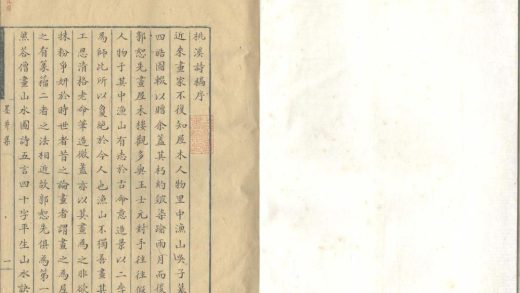 桃溪詩稿序
近來畫家不復知屋木人物里中漁山吳子摹
四皓圖輟以贈余蓋其朽約皴染踰兩月而後
郭恕先畫屋木樓觀多與王士元對手往往假
人物于其中漁山有志於古命意造景以二李
為師此所以夐絶於今人也漁山不獨善畫其
工思清格老命筆造微蓋亦以其畫為之非欲
抹粉爭妍於時世者昔之論畫者謂畫之為屋
之有篆籀二者之法相近故郭恕先俱為第一
然荅僧畫山水圖詩五言四十字平生山水訣
墨井集
一